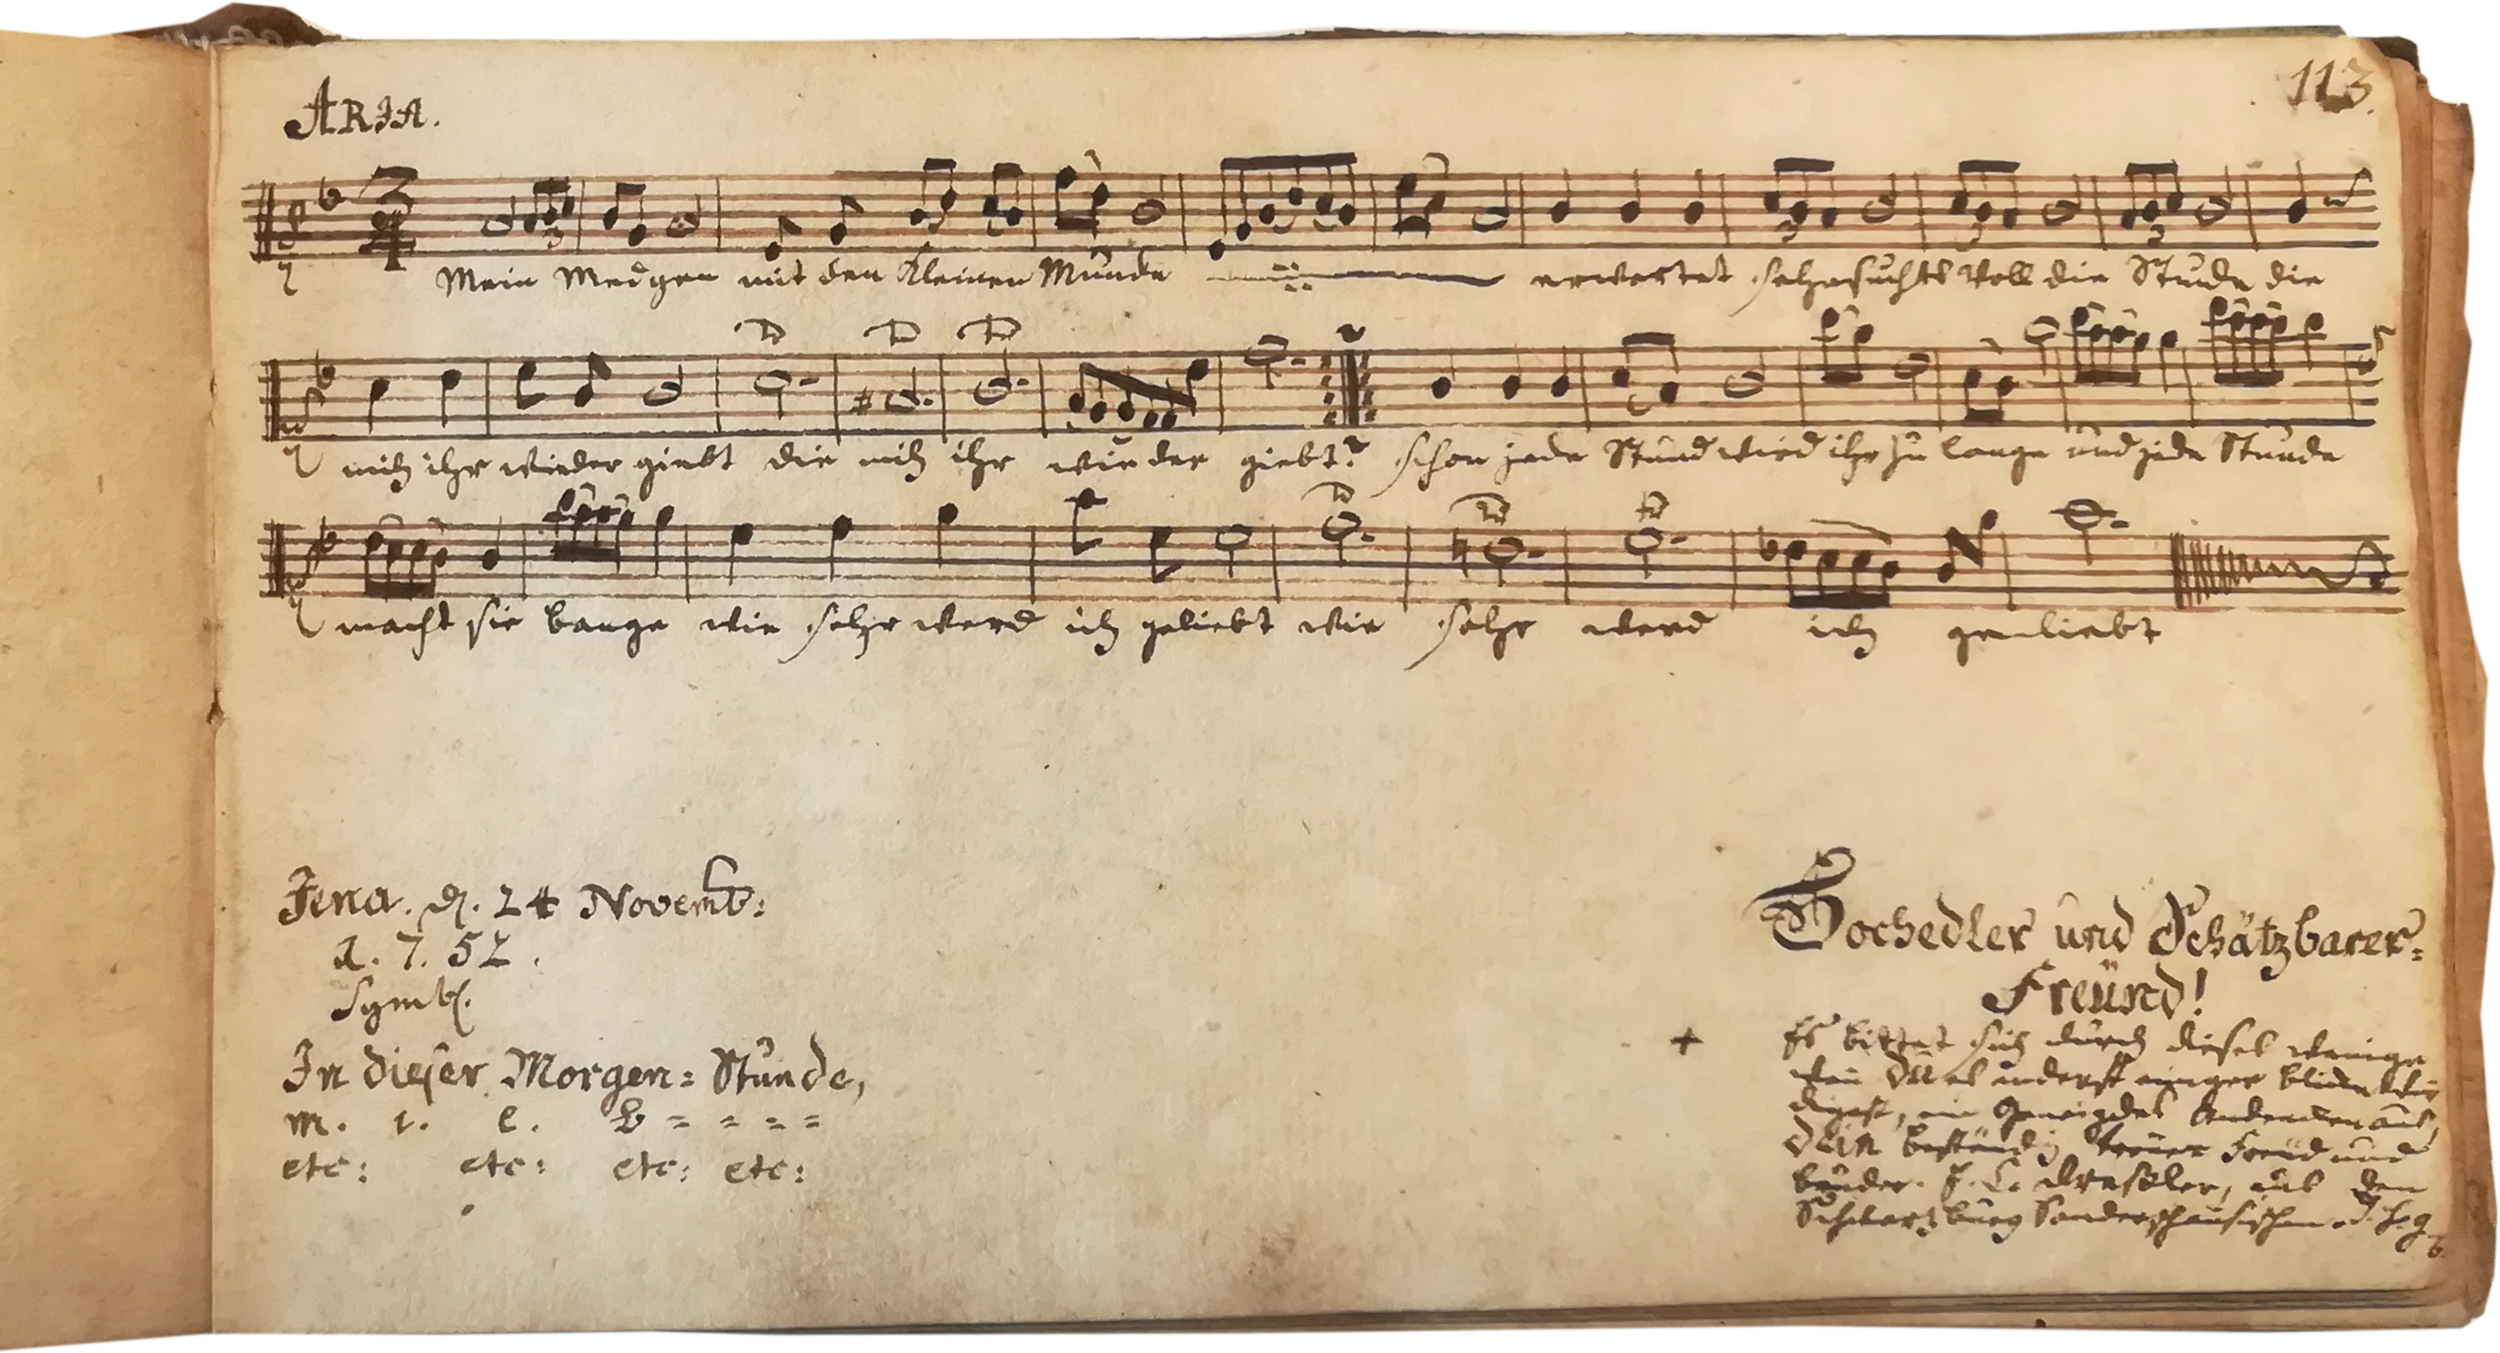 113.
ARIA.
3
4
Mein Medgen mit den Kleinen Munde erwartet sehnsuchts voll die Stunde die
mich ihr wieder giebt die mich ihr wieder giebt? schon jede Stund wird ihr zu lange und jede Stunde
macht sie bange wie sehr werd ich geliebt wie sehr werd ich geliebt
Jena. d. 24 Novemb:
1. 7. 52.
Symb.
In dieser Morgen= Stunde,
m. i. e. B = = = =
etc: etc: etc: etc:
Hochedler und Schätzbarer=
Freünd!
Es bittet sich durch dieses wenige
Du es anderst einiger
ein Geneigdes Andencken aus,
Dein beständig treuer Freüd und
bruder. F. C. aus dem
Schwartzburg Sondershausischen